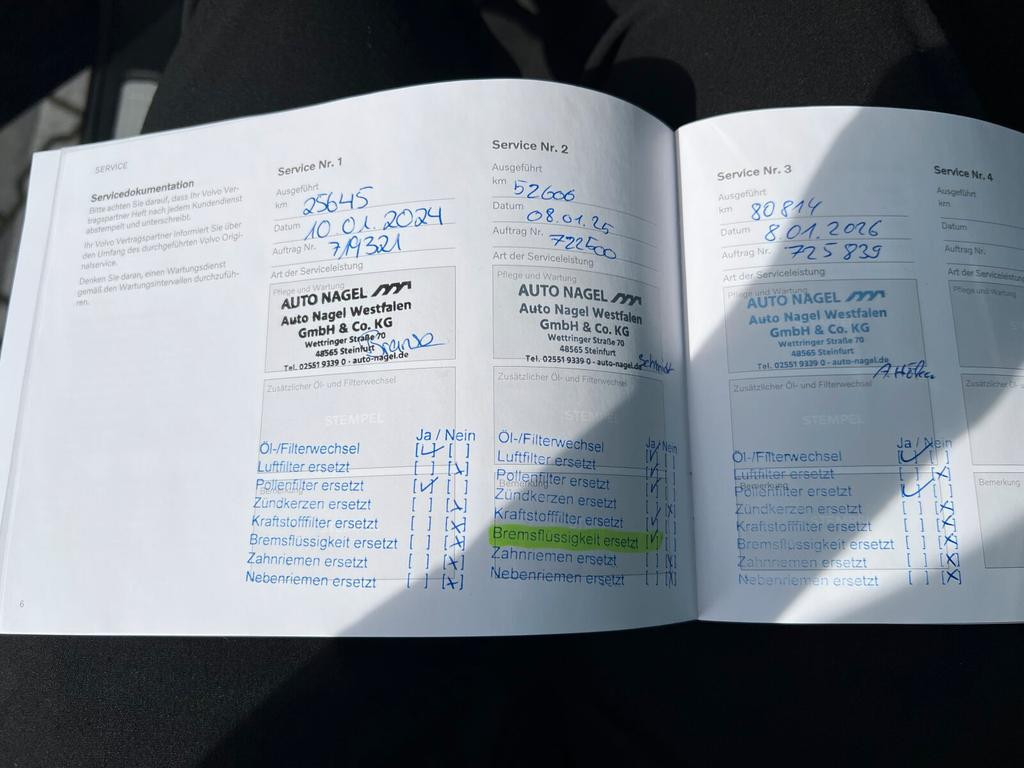 SERVICE
Servicedokumentation
Bitte achten Sie darauf, dass Ihr Volvo Ver-
tragspartner Heft nach jedem Kundendienst
abstempelt und unterschreibt.
Ihr Volvo Vertragspartner informiert Sie über
den Umfang des durchgeführten Volvo Origi-
nalservice.
Denken Sie daran, einen Wartungsdienst
gemäß den Wartungsintervallen durchzufüh-
ren.
6
Service Nr. 1
Ausgeführt
km 25645
Datum 10.01.2024
Auftrag Nr. 719321
Art der Serviceleistung
Pflege und Wartung
AUTO NAGEL
Auto Nagel Westfalen
GmbH & Co. KG
Wettringer Straße 70
48565 Steinfurt
Tel. 02551 9339 0 - auto-nagel.de
Zusätzlicher Öl- und Filterwechsel
STEMPEL
Ja / Nein
Öl-/Filterwechsel [✓] [ ]
Luftfilter ersetzt [ ] [x]
Pollenfilter ersetzt [✓] [ ]
Bemerkung
Zündkerzen ersetzt [ ] [x]
Kraftstofffilter ersetzt [ ] [x]
Bremsflüssigkeit ersetzt [ ] [x]
Zahnriemen ersetzt [ ] [x]
Nebenriemen ersetzt [ ] [x]
Service Nr. 2
Ausgeführt
km 52606
Datum 08.01.25
Auftrag Nr. 722500
Art der Serviceleistung
Pflege und Wartung
AUTO NAGEL
Auto Nagel Westfalen
GmbH & Co. KG
Wettringer Straße 70
48565 Steinfurt
Tel. 02551 9339 0 - auto-nagel.de
Schmidt
Zusätzlicher Öl- und Filterwechsel
STEMPEL
Ja / Nein
Öl-/Filterwechsel [✓] [ ]
Luftfilter ersetzt [✓] [ ]
Pollenfilter ersetzt [✓] [ ]
Bemerkung
Zündkerzen ersetzt [ ] [x]
Kraftstofffilter ersetzt [✓] [ ]
Bremsflüssigkeit ersetzt [✓] [ ]
Zahnriemen ersetzt [ ] [x]
Nebenriemen ersetzt [ ] [x]
Service Nr. 3
Ausgeführt
km 80814
Datum 8.01.2026
Auftrag Nr. 725839
Art der Serviceleistung
Pflege und Wartung
AUTO NAGEL
Auto Nagel Westfalen
GmbH & Co. KG
Wettringer Straße 70
48565 Steinfurt
Tel. 02551 9339 0 - auto-nagel.de
Zusätzlicher Öl- und Filterwechsel
STEMPEL
Ja / Nein
Öl-/Filterwechsel [✓] [ ]
Luftfilter ersetzt [ ] [x]
Pollenfilter ersetzt [✓] [ ]
Bemerkung
Zündkerzen ersetzt [ ] [x]
Kraftstofffilter ersetzt [ ] [x]
Bremsflüssigkeit ersetzt [ ] [x]
Zahnriemen ersetzt [ ] [x]
Nebenriemen ersetzt [ ] [x]
Service Nr. 4
Ausgeführt
km
Datum
Auftrag Nr.
Art der Serviceleistun
Pflege und Wartung
Zusätzlicher Öl- und
Bemerkung